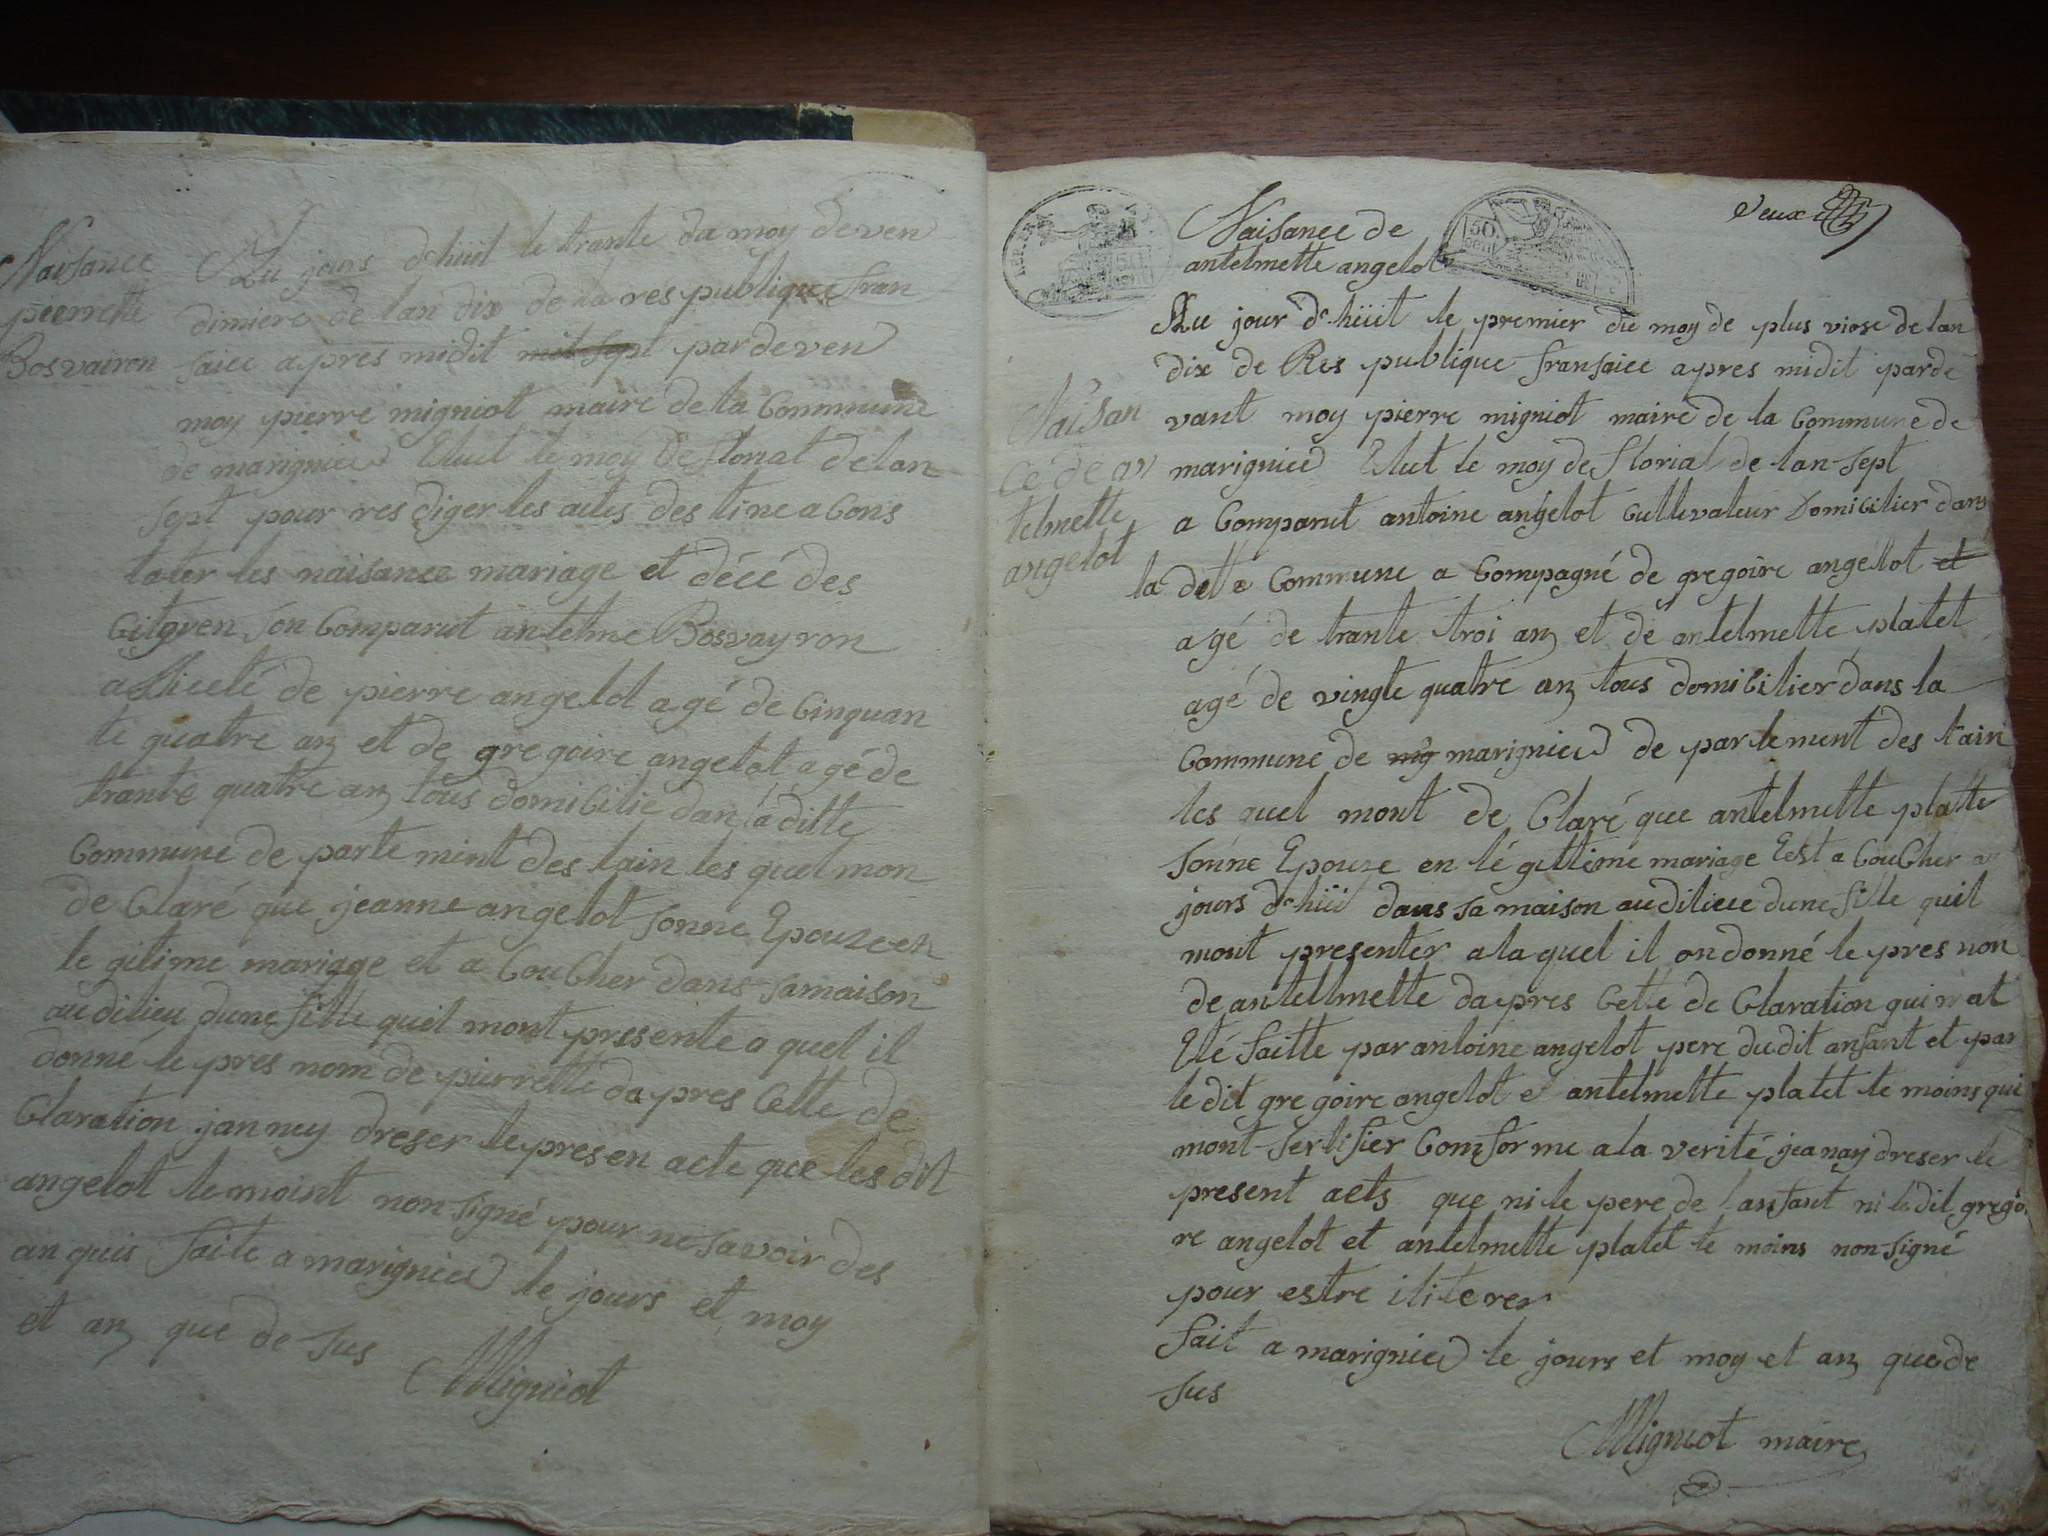 Naisance
pierrette
Bosvairon
Au jours d'huit le trante du moy de ven
dimiere de lan dix de la res publique fran
saice apres midit mil sept par deven
moy pierre migniot maire de la Commune
de marignieu Elut le moy de florial de lan
sept pour res diger les actes des tine a Cons
tater les naisance mariage et décé des
Citoyen son Comparut antelme Bosvayron
assicté de pierre angelot agé de Cinquan
te quatre an et de gregoire angelot agé de
trante quatre an tous domicilié dans la ditte
Commune de parte ment des lain les quel mon
de Claré que jeanne angelot sonne Epouze en
le gitime mariage et a CouCher dans samaison
audilieu dune fille quil mont presente a quel il
donné le pres nom de pierrette da pres Cette de
Claration jan ney dreser le presen acte que les dit
angelot te moint non signé pour ne savoir des
an quis faite a marignieu le jours et moy
et an que de sus
Migniot
Naisance de
antelmette angelot
50
Naisan
ce de an
telmette
angelot
Au jour d'huit le premier du moy de plus viose de lan
dix de Res publique fransaice apres midit par de
vant moy pierre migniot maire de la Commune de
marignieu Elut le moy de florial de lan sept
a Comparut antoine angelot Cultivateur Domicilier dans
la dette Commune a Compagné de gregoire angelot et
agé de trante troi an et de antelmette platet
agé de vingte quatre an tous domicilier dans la
Commune de mg marignieu de partement des lain
les quel mont de Claré que antelmette platte
sonne Epouze en lé gittime mariage Eest a CouCher au
jours d'huit dans sa maison audilieu dune fille quil
mont presenter a la quel il on donné le pres non
de antelmette da pres Cette de Claration qui m at
Eté faitte par antoine angelot pere du dit anfant et par
le dit gregoire angelot et antelmette platet te moins qui
mont sertifier Comforme a la verité jea nay dreser le
present acts que ni le pere de lanfant ni le dit grego
re angelot et antelmette platet te moins non signé
pour estre iliterer
fait a marignieu le jours et moy et an que de
sus
Migniot maire